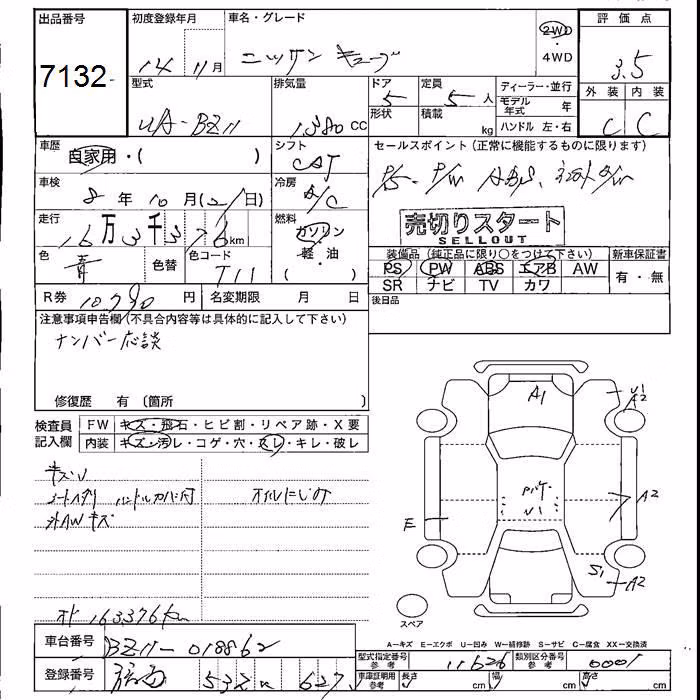 出品番号
7132
初度登録年月
14 年 11 月
車名・グレード
ニッサン キューブ
2WD
・
4WD
評価点
3.5
外装 内装
C C
型式
UA-BZ11
排気量
1,380 cc
ドア
5
形状
定員
5 人
積載
kg
ディーラー・並行
モデル年式 年
ハンドル 左・右
車歴
自家用・( )
シフト
CAT
車検
8 年 10 月 (21日)
冷房
A/C
走行
16 万 3 千 376 km
燃料
ガソリン
・
軽・油
色
青
色替
色コード
T11
R券
10,790 円
名変期限 月 日
セールスポイント(正常に機能するものに限ります)
P/S P/W ABS
売切りスタート
SELLOUT
装備品(純正品に限り○をつけて下さい)
PS PW ABS エアB AW
SR ナビ TV カワ
新車保証書
有・無
後日品
注意事項申告欄(不具合内容等は具体的に記入して下さい)
ナンバー応談
修復歴 有(箇所
検査員記入欄
FW キズ・飛石・ヒビ割・リペア跡・X要
内装 キズ・汚レ・コゲ・穴・スレ・キレ・破レ
キズU
シートヘタリ ハンドルカバー付 オイルにじみ
外AWキズ
メータ 163,376 km
A1
U1
A2
U1
A2
E
S1
A2
スペア
A=キズ E=エクボ U=凹み W=補修跡 S=サビ C=腐食 XX=交換済
車台番号
BZ11-018862
登録番号
532 627
型式指定番号
参考
11626
類別区分番号
参考
0001
車庫証明用
参考
長さ cm 幅 cm 高さ cm